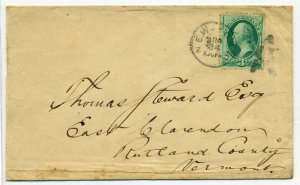 NEW
Thomas Steward Esq
East Clarendon
Rutland County
Vermont.